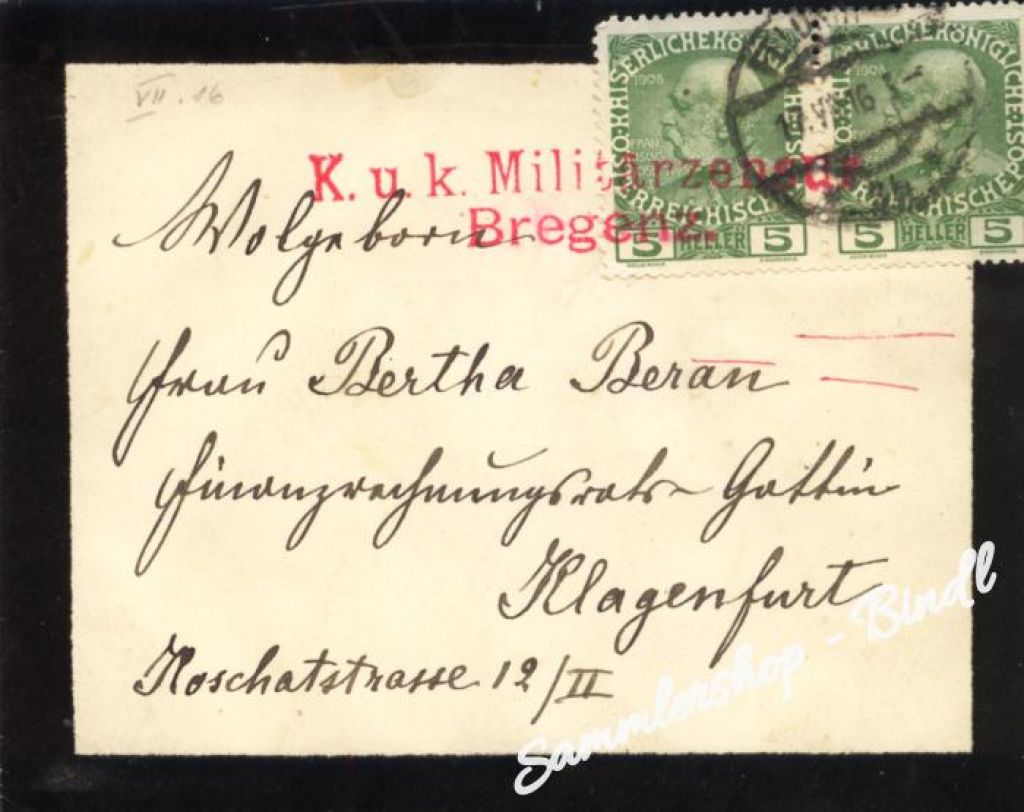 VII. 16
KAISERLICHE KÖNIGLICHE ÖSTERREICHISCHE POST
1908
FRANZ
5 HELLER 5
KÖNIGLICHE
1908
REICHISCHE POST
5 HELLER 5
17.VII.16
K. u. k. Militärzensur
Bregenz.
Wolgeboren
Frau Bertha Beran
Finanzrechnungsrats-Gattin
Klagenfurt
Koschatstrasse 12/II
Sammlershop - Bindl